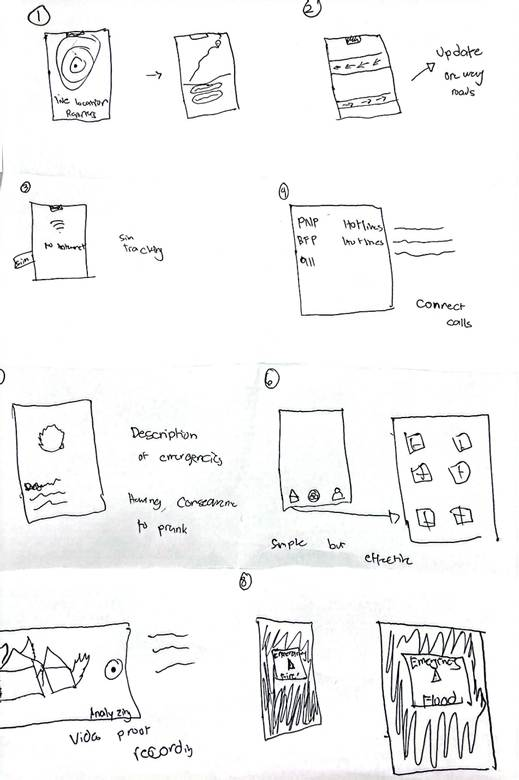 1
Live location
2
Update
one way
roads
3
No Internet
Sim
Sim
tracking
4
PNP Hotlines
BFP Hotlines
911
Connect
calls
Description
of emergencies
Having Consequence
to prank
6
Simple but
effective
Analyzing
Video proof
recording
8
Emergency
Fire!
Emergency
Flood